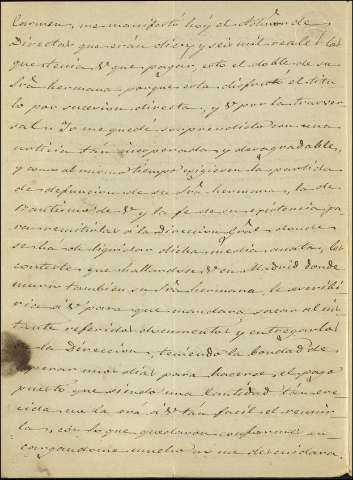 Carmen, me manifestó hoy el Señor de
Director que eran diez y seis mil reales los
que tenia Vd que pagar, esto el doble de su
Sra hermana, porque esta disfrutó el titu
lo por sucesion directa, y Vd por la transver
sal. Yo me quedé sorprendido con una
noticia tán inesperada y desagradable,
y como al mismo tiempo exigiesen la partida
de defuncion de su Sra hermana, la de
Bautismo de Vd y la fe de su existencia pa
ra remitirlas á la Direccion Gral donde
se há de liquidar dicha media anata, les
contesté que hallandose Vd en Madrid donde
murió tambien su Sra hermana, le escribi
ria á Vd para que mandara sacar al ins
tante referidos documentos y entregarlos
en la Direccion, teniendo la bondad de
esperar unos dias para hacerse el pago
puesto que siendo una cantidad tán cre
cida no la erá á Vd tan facil el reunir
la, con lo que quedaron conformes en
cargandome mucho no me descuidara.